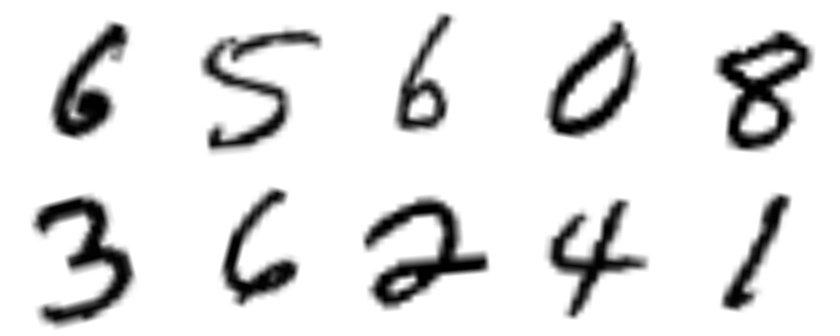 6 5 6 0 8
3 6 2 4 1